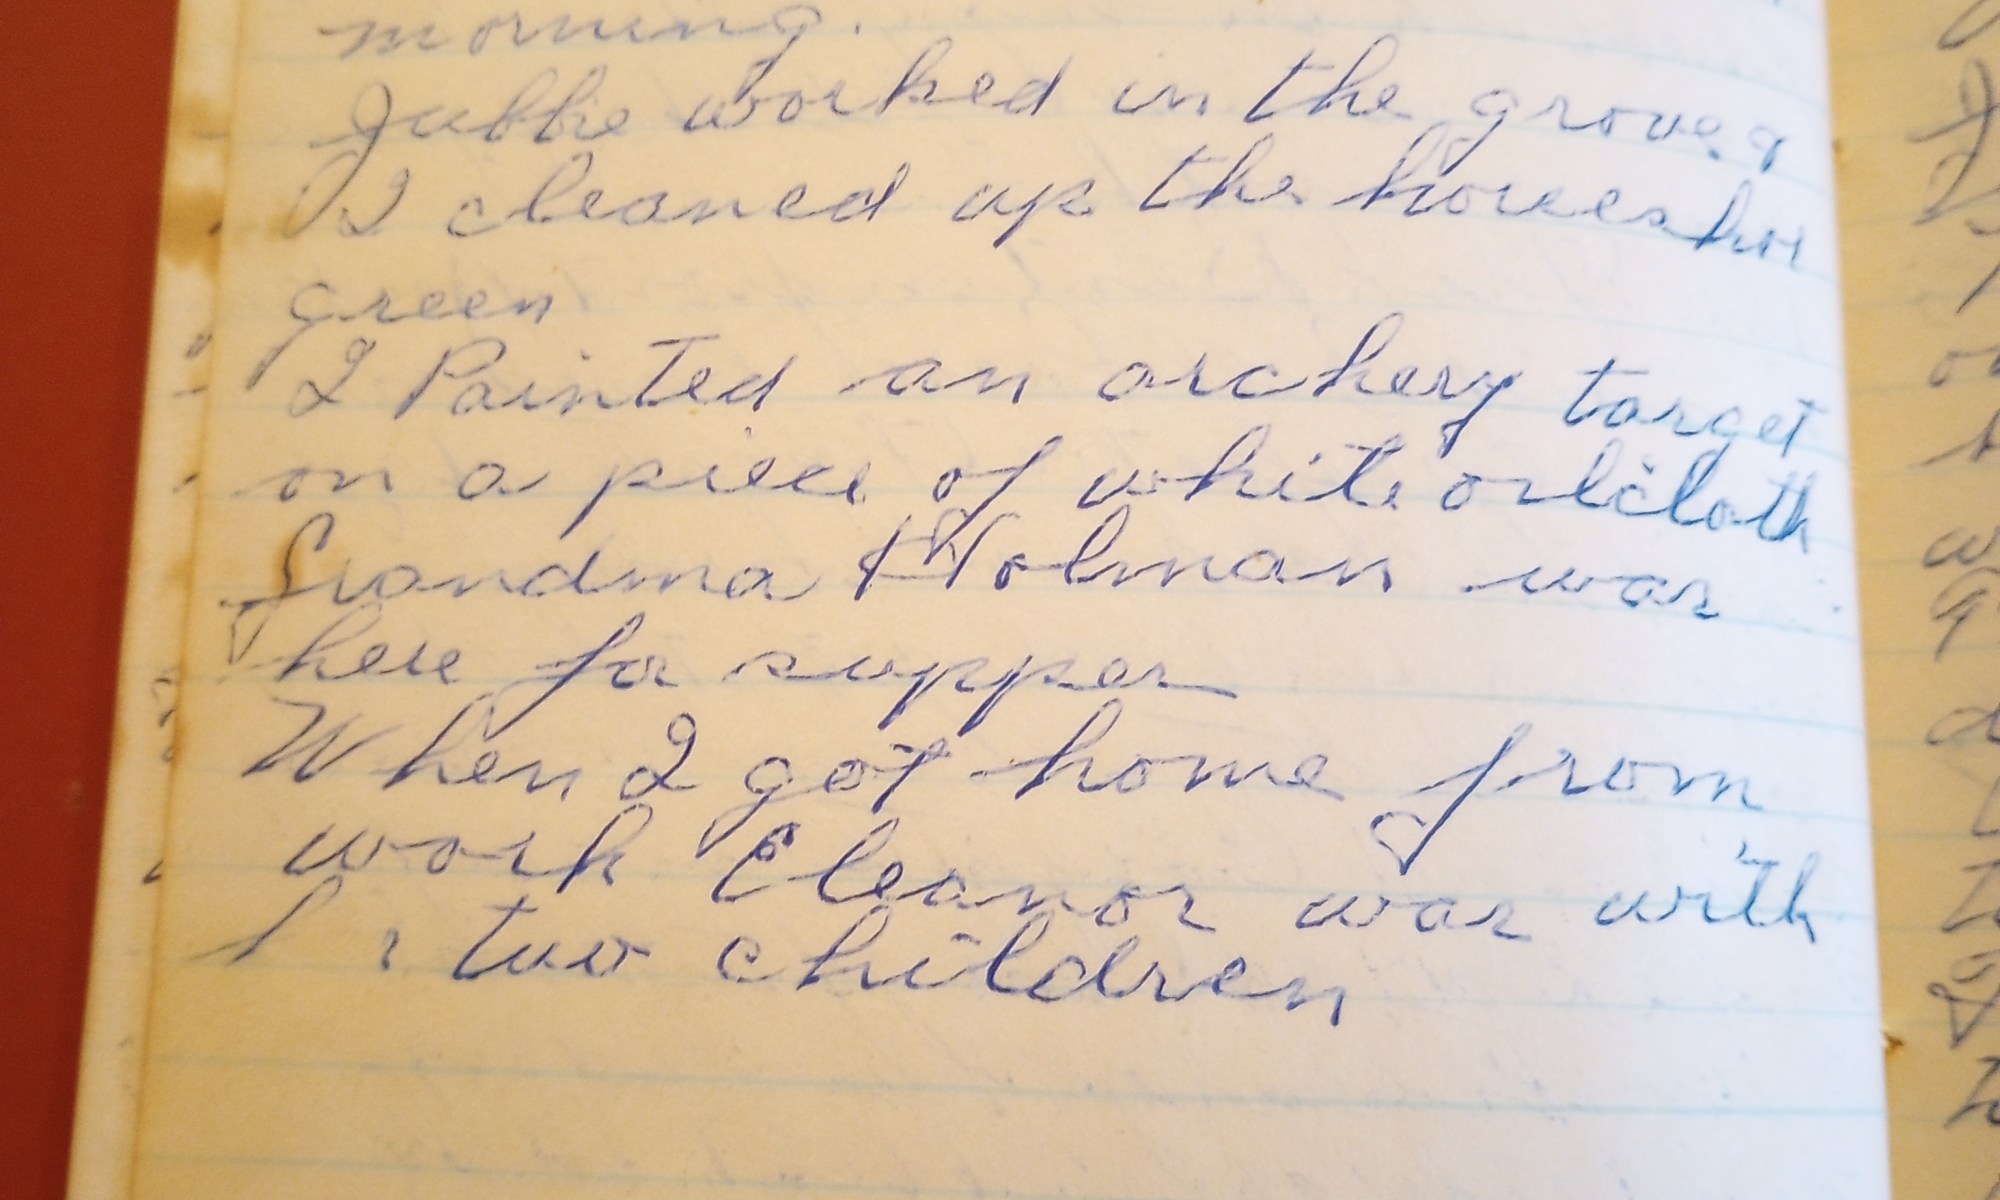 morning.
Jubbe worked in the grove, &
I cleaned up the horseshoe
green
I Painted an archery target
on a piece of white oilcloth
Grandma Holman was
here for supper
When I got home from
work Eleanor was with
two children